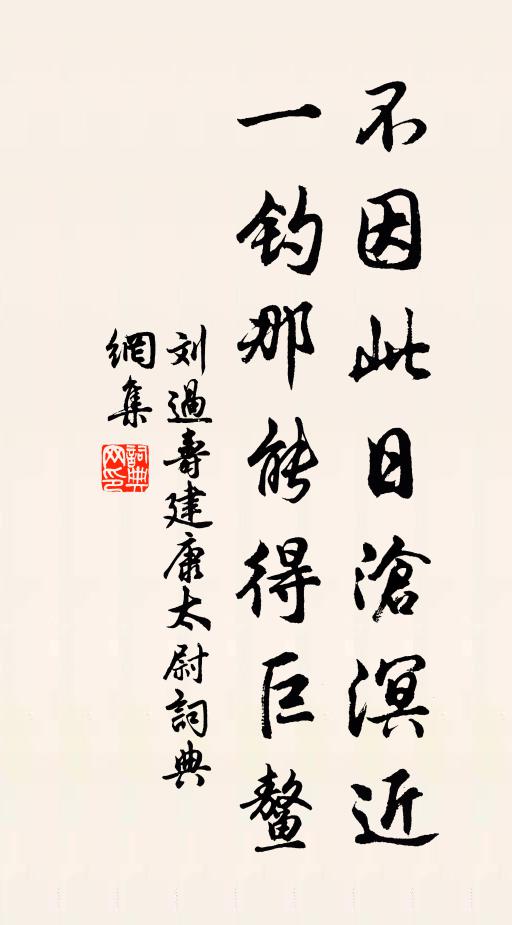 不因此日滄溟近
一钓那能得巨鳌
刘過壽建康太尉詞典
網集
詞典网印